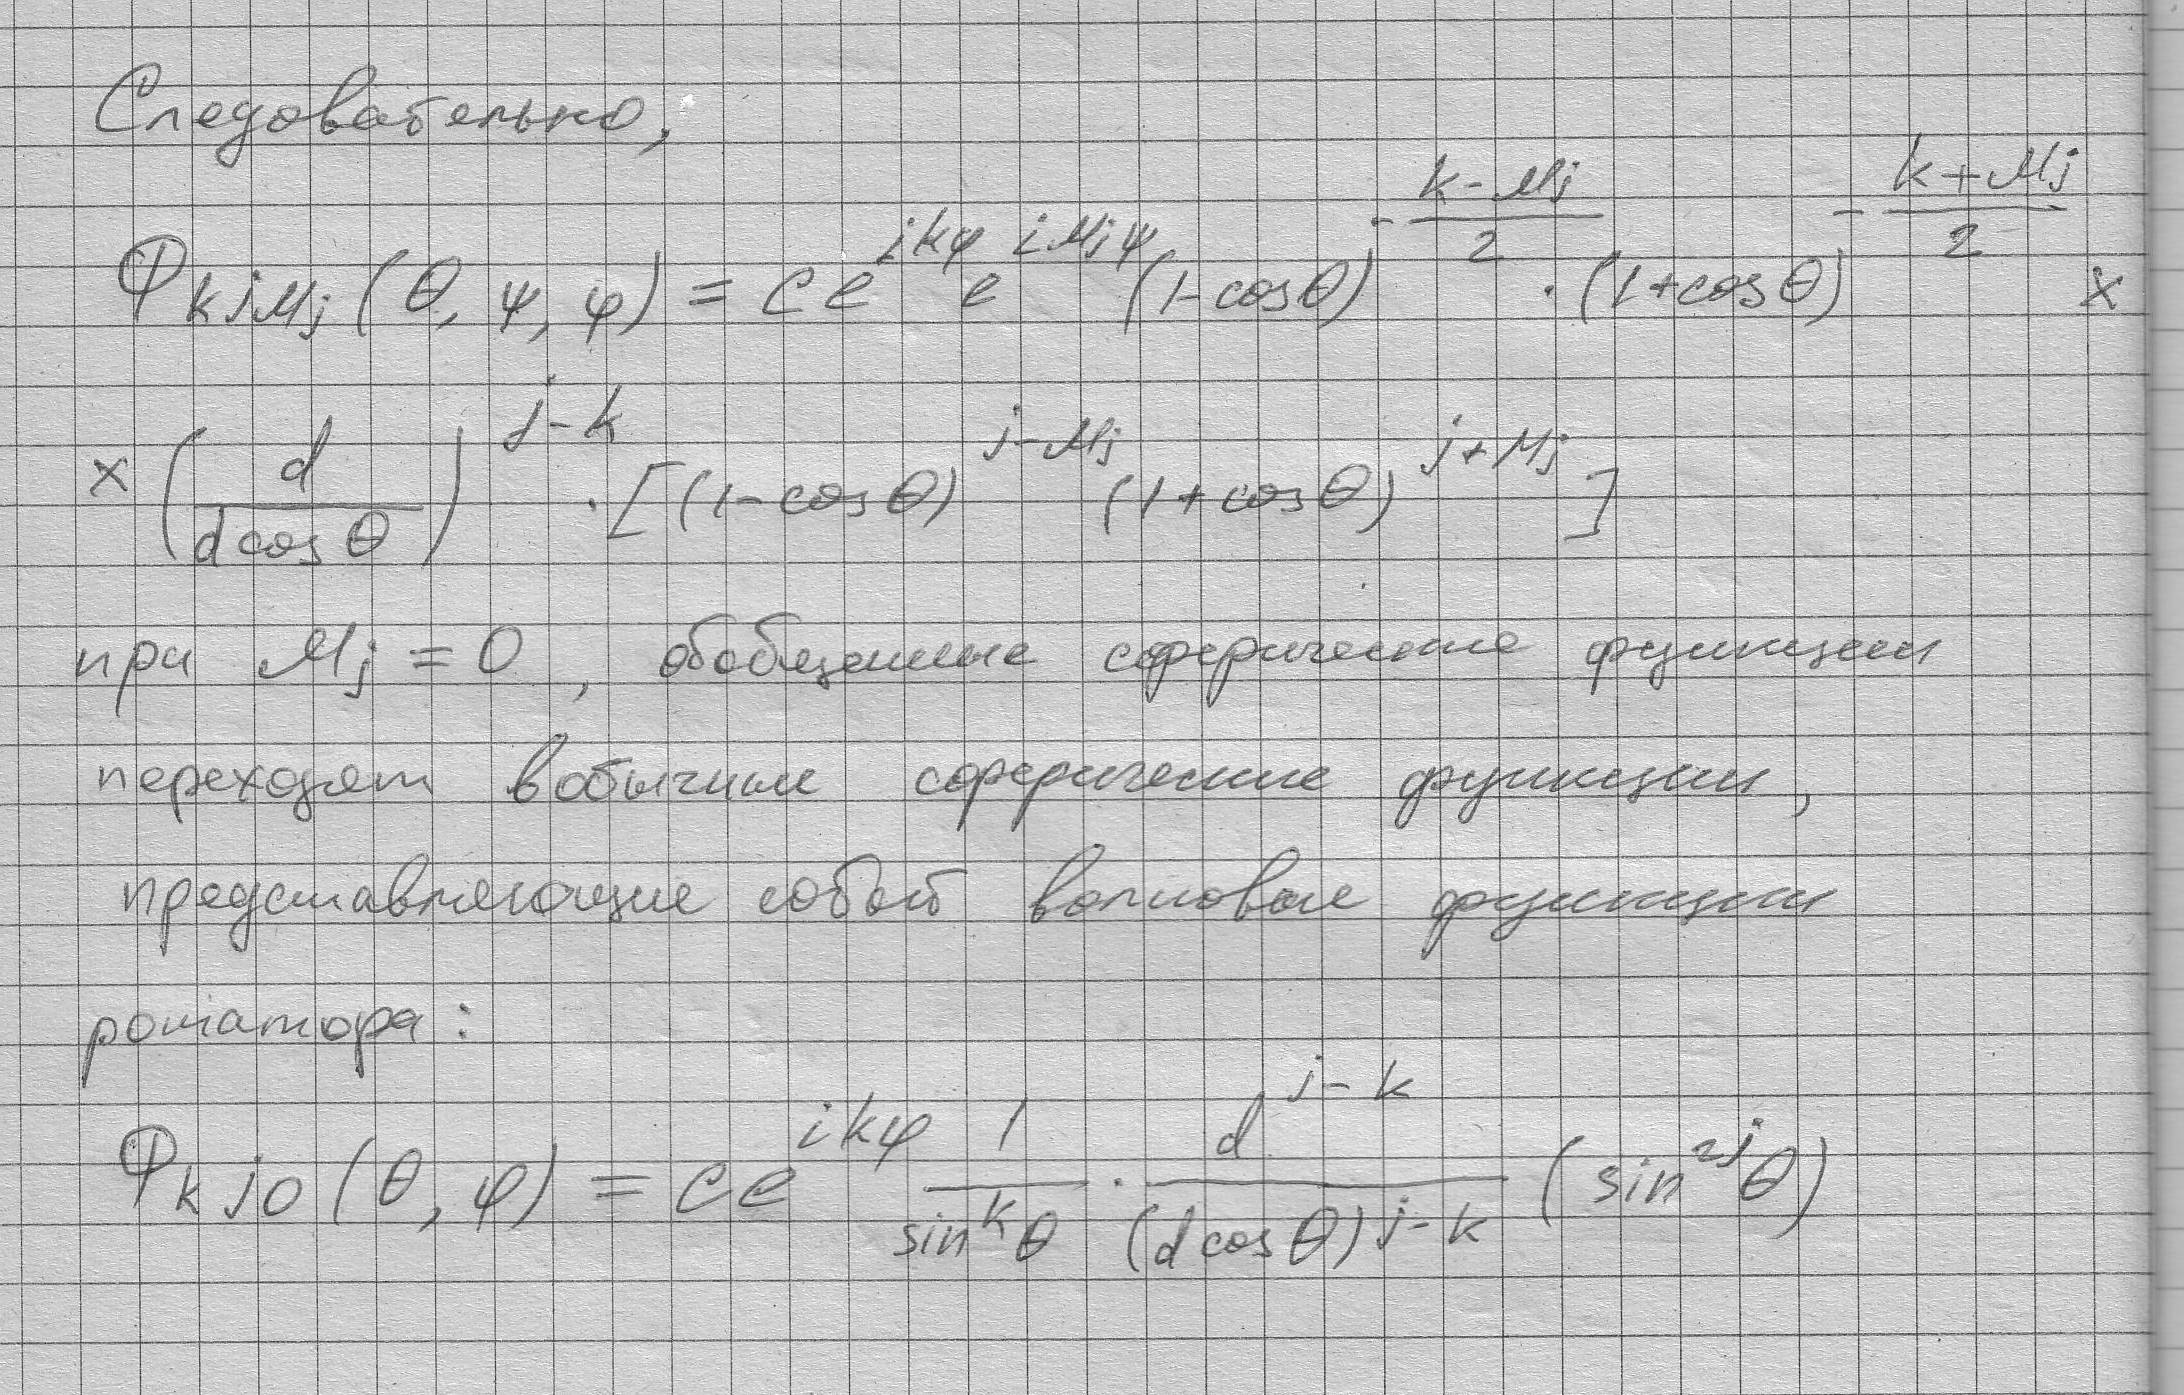 Следовательно,
Φ_{kjM_j}(θ, ψ, φ) = C e^{ikφ} e^{iM_jψ} (1-cosθ)^{-\frac{k-M_j}{2}} · (1+cosθ)^{-\frac{k+M_j}{2}} ×
× (\frac{d}{d cosθ})^{j-k} · [(1-cosθ)^{j-M_j} (1+cosθ)^{j+M_j}]
при M_j = 0, обобщенные сферические функции
переходят в обычные сферические функции,
представляющие собой волновые функции
ротатора:
Φ_{kj0}(θ, φ) = C e^{ikφ} \frac{1}{sin^k θ} · \frac{d^{j-k}}{(d cosθ)^{j-k}} (sin^{2j} θ)